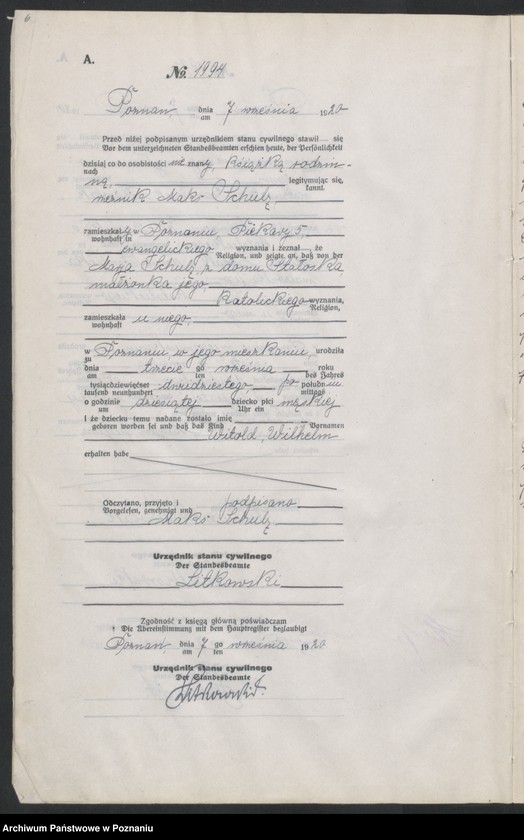 6
A.
№ 1994
Poznań, dnia 7 września 1920
am
Przed niżej podpisanym urzędnikiem stanu cywilnego stawił się
Vor dem unterzeichneten Standesbeamten erschien heute, der Persönlichkeit
dzisiaj co do osobistości nie znany, książką rodzin-
nach
ną legitymując się,
kannt.
Maks Schulz
zamieszkały w Poznaniu, Piekary 5,
wohnhaft in
ewangelickiego wyznania i zeznał, że
Religion, und zeigte an, daß von der
Marja Schulz z domu
małżonka jego,
katolickiego wyznania,
Religion,
zamieszkała u niego,
wohnhaft
w Poznaniu w jego mieszkaniu, urodziła
zu
dnia trzecie go września roku
am ten des Jahres
tysiącdziewięćset dwudziestego po południu
tausend neunhundert mittags
o godzinie dziesiątej dziecko płci męskiej
um Uhr ein
i że dziecku temu nadane zostało imię
geboren worden sei und daß das Kind Vornamen
Witold, Wilhelm
erhalten habe
Odczytano, przyjęto i podpisano
Vorgelesen, genehmigt und
Maks Schulz
Urzędnik stanu cywilnego
Der Standesbeamte
Litkowski
Zgodność z księgą główną poświadczam
Die Übereinstimmung mit dem Hauptregister beglaubigt
Poznań dnia 7 go września 1920
am ten
Urzędnik stanu cywilnego
Der Standesbeamte
Archiwum Państwowe w Poznaniu